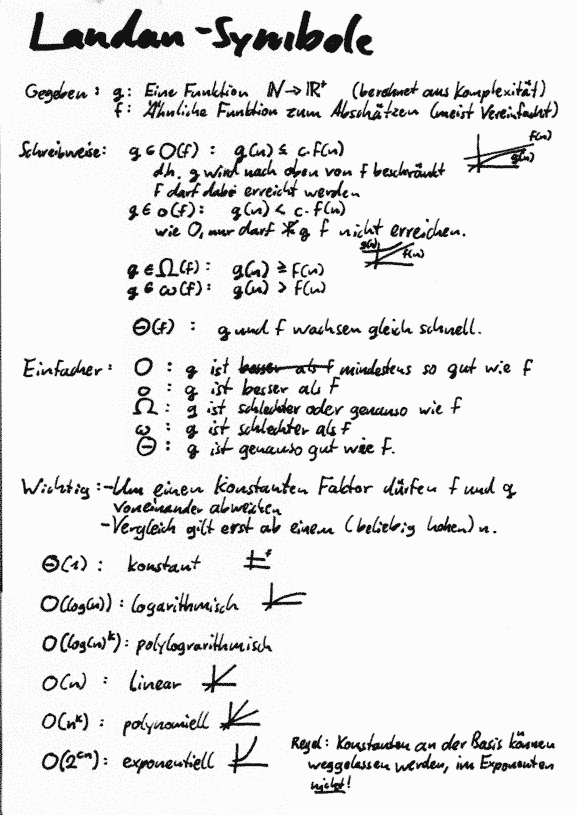 Landau-Symbole
Gegeben: g: Eine Funktion ℕ→ℝ⁺ (berechnet aus Komplexität)
f: Ähnliche Funktion zum Abschätzen (meist Vereinfacht)
Schreibweise: g ∈ O(f): g(n) ≤ c·f(n)
f(n)
g(n)
d.h. g wird nach oben von f beschränkt
f darf dabei erreicht werden
g ∈ o(f): g(n) < c·f(n)
wie O, nur darf g f nicht erreichen.
g(n)
f(n)
g ∈ Ω(f): g(n) ≥ f(n)
g ∈ ω(f): g(n) > f(n)
Θ(f): g und f wachsen gleich schnell.
Einfacher: O: g ist besser als f mindestens so gut wie f
o: g ist besser als f
Ω: g ist schlechter oder genauso wie f
ω: g ist schlechter als f
Θ: g ist genauso gut wie f.
Wichtig: - Um einen konstanten Faktor dürfen f und g
voneinander abweichen
- Vergleich gilt erst ab einem (beliebig hohen) n.
Θ(1): konstant
f
O(log(n)): logarithmisch
O(log(n)ᵏ): polylograrithmisch
O(n): linear
O(nᵏ): polynomiell
O(2ᶜⁿ): exponentiell
Regel: Konstanten an der Basis können
weggelassen werden, im Exponenten
nicht!